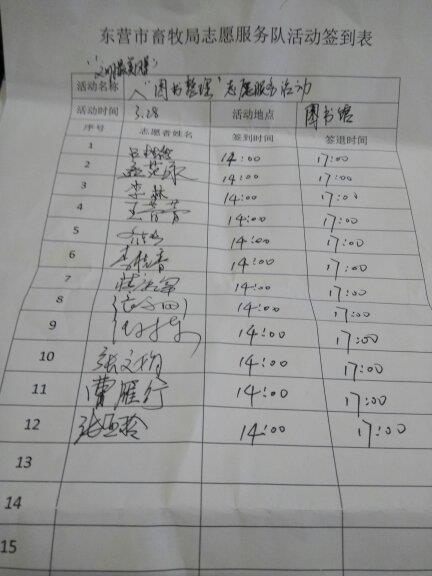 东营市畜牧局志愿服务队活动签到表
活动名称 "图书整理"志愿服务活动
活动时间 3.28 活动地点 图书馆
序号 志愿者姓名 签到时间 签退时间
1 14:00 17:00
2 14:00 17:00
3 李林 14:00 17:00
4 王菁菁 14:00 17:00
5 14:00 17:00
6 14:00 17:00
7 14:00 17:00
8 14:00 17:00
9 14:00 17:00
10 张文均 14:00 17:00
11 曹雁行 14:00 17:00
12 14:00 17:00
13
14
15